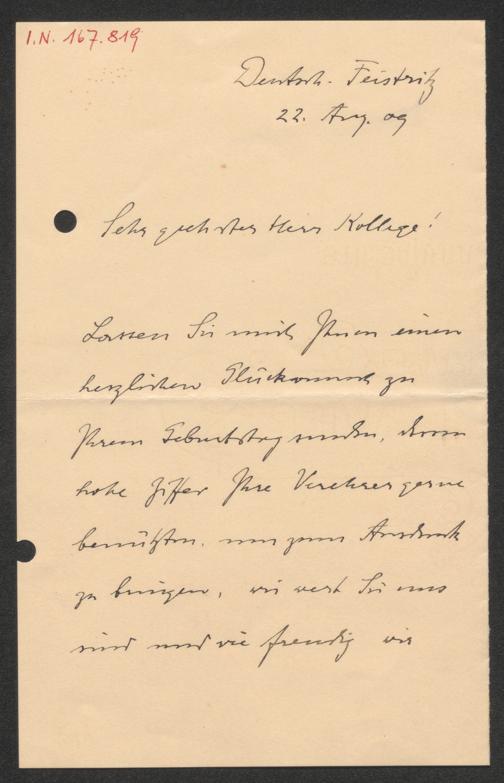 I.N. 167.819
Deutsch. Feistritz
22. Aug. 09
Sehr geehrter Herr Kollege!
Lassen Sie mich Ihnen einen
herzlichen Glückwunsch zu
Ihrem Geburtstag senden, deren
hohe Ziffer Ihre Verehrer gerne
benützten, um zum Ausdruck
zu bringen, wie wert Sie uns
sind und wie freudig wir